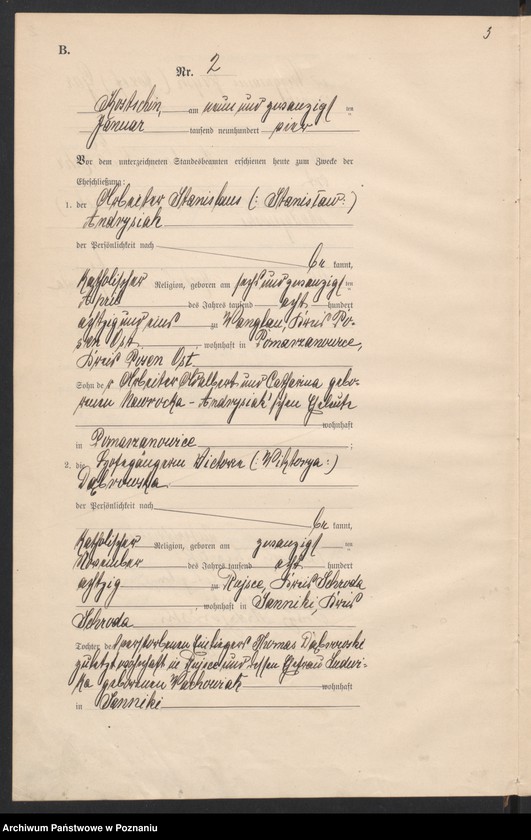 3
B.
Nr. 2
Kostschin, am neun und zwanzigsten
Januar tausend neunhundert vier
Vor dem unterzeichneten Standesbeamten erschienen heute zum Zwecke der
Eheschließung:
1. der Arbeiter Stanislaus (: Stanisław :)
Andrysiak
der Persönlichkeit nach
be kannt,
katholischer Religion, geboren am sechs und zwanzigsten
April des Jahres tausend acht hundert
achtzig und eins zu Wenglau, Kreis Po-
sen Ost, wohnhaft in Pomarzanowice,
Kreis Posen Ost
Sohn der Arbeiter Adalbert und Catharina gebo-
renen Naworocka - Andrysiak'schen Eheleute
wohnhaft
in Pomarzanowice ;
2. die Victoria (: Wiktorya :)
Dąbrowska
der Persönlichkeit nach
be kannt,
katholischer Religion, geboren am zwanzigsten
November des Jahres tausend acht hundert
achtzig zu Rujsce, Kreis Schroda
, wohnhaft in Janniki, Kreis
Schroda
Tochter des verstorbenen Einliegers Thomas Dąbrowski
zuletzt wohnhaft in Rujsce und dessen Ehefrau Ludwi-
ka geborenen Wachowiak wohnhaft
in Janniki
Archiwum Państwowe w Poznaniu